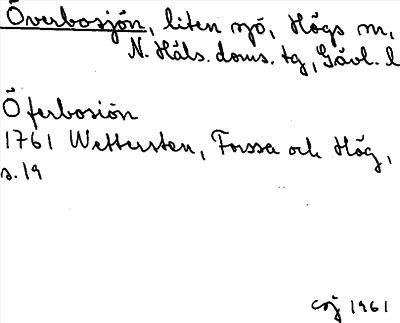 Överbosjön, liten sjö, Högs sn,
N. Häls. doms. tg, Gävl. l
Öferbosiön
1761 Wettersten, Forssa och Hög,
s. 19
1961